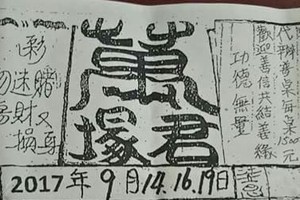 代辦善桌每桌1500元
歡迎善信共結善緣
功德無量
萬君塚
賭又身
彩迷財損
2017年9月14.16.19日